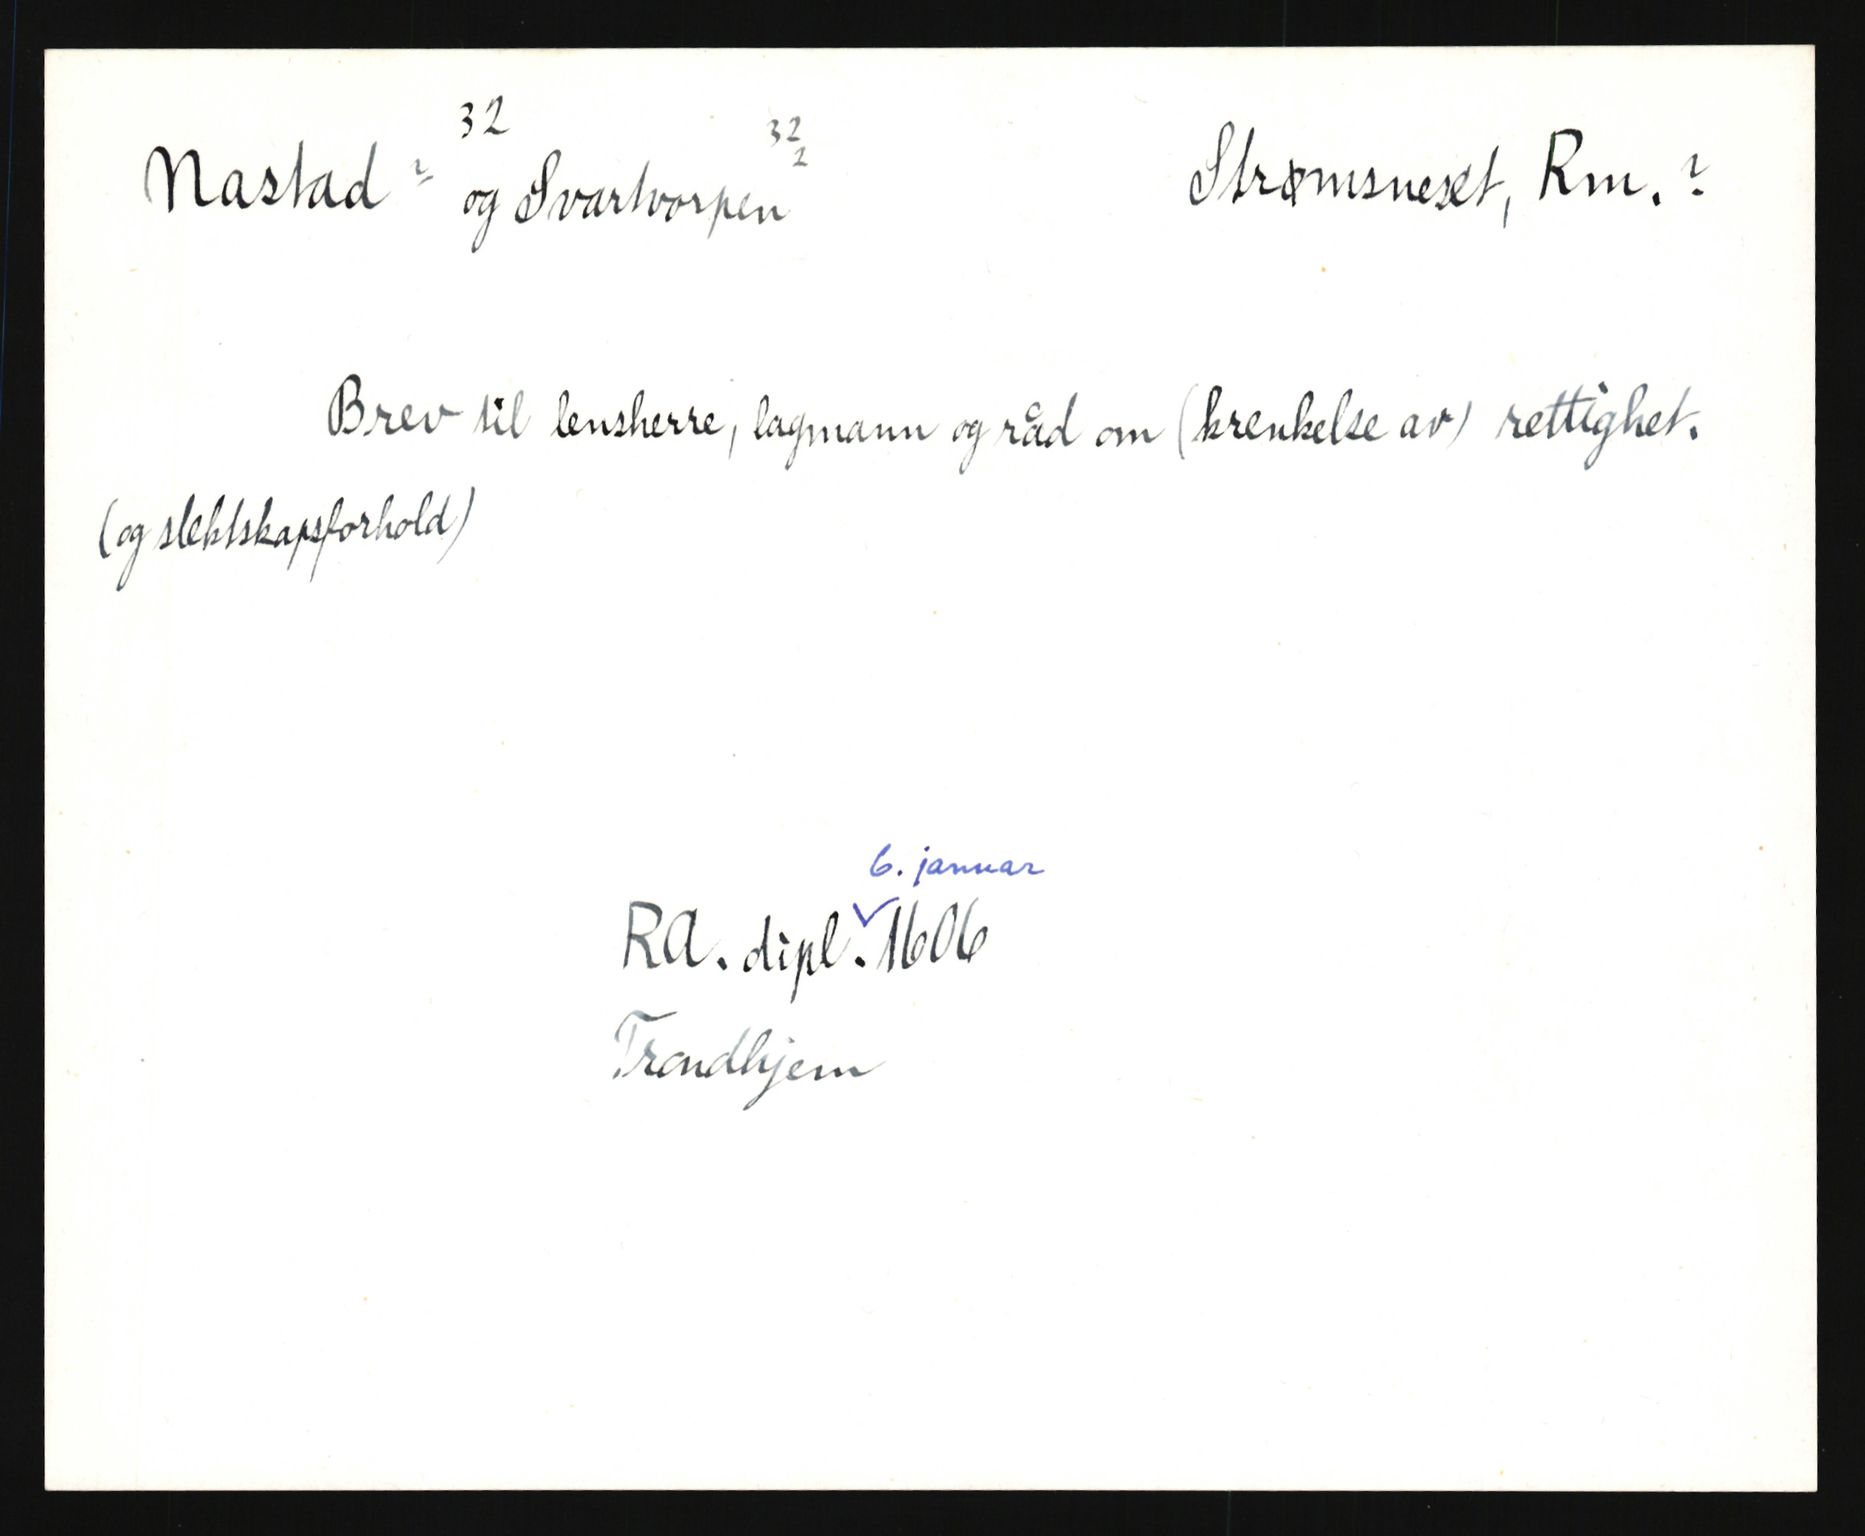 32 32
2
Nastad ? og Svartvorpen Strømsneset, Rm. ?
Brev til lensherre, lagmann og råd om (krenkelse av) rettighet.
(og slektskapsforhold)
6. januar
RA. dipl. 1606
Trondhjem